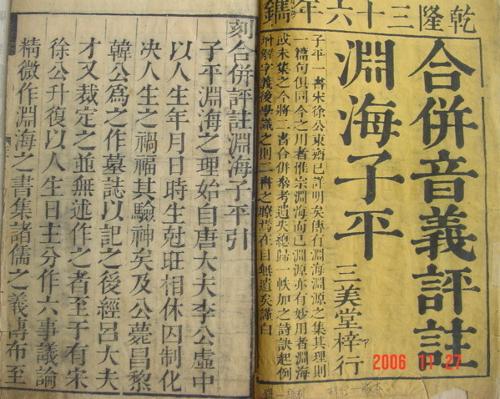 乾隆三十六年鐫
合併音義評註
淵海子平
三美堂梓行
子平一書宋徐公東齋已詳明矣唐有淵海淵源之集其理則
一篇句俱同今之用者惟宗淵海而已淵源亦有妙用者淵海
或未集之今將二書合併參考遺失總歸一帙加之詩訣起例
增解字義後學識之則二書之瞭然在目無遺矣謹白
刻合併評註淵海子平引
子平淵海之理始自唐大夫李公虛中
以人生年月日時生尅旺相休囚制化
決人生之禍福其驗神矣及公薨昌黎
韓公爲之作墓誌以記之後經呂大夫
才又裁定之並無述作之者至于有宋
徐公升復以人生日主分作六事議論
精微作淵海之書集諸儒之義傳布至
2006 11 27